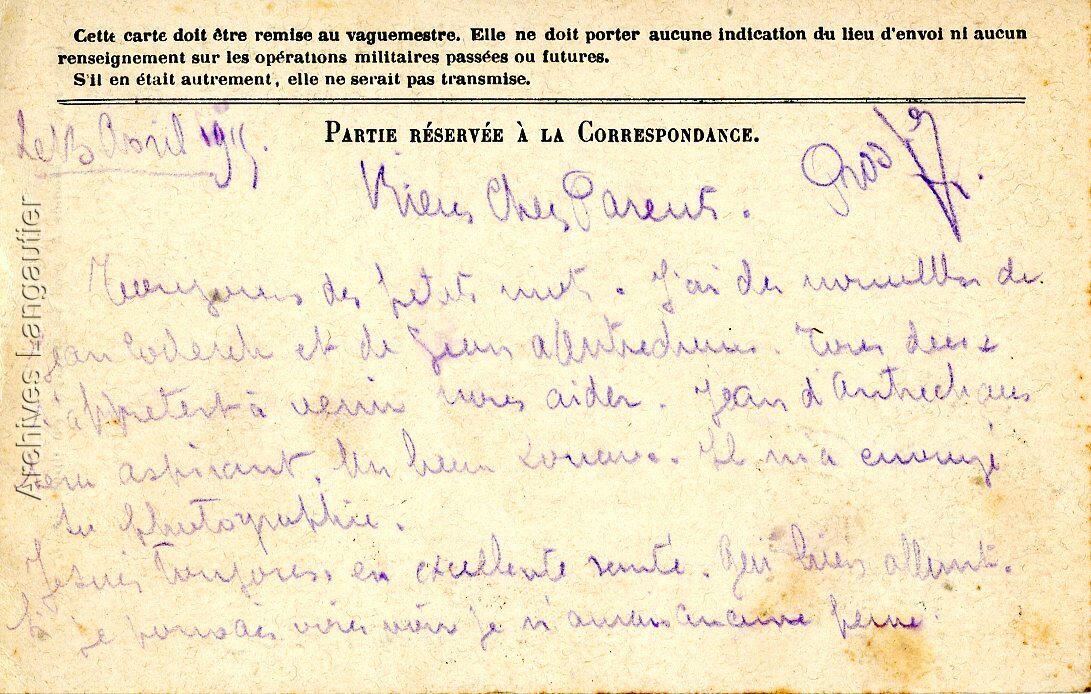 Cette carte doit être remise au vaguemestre. Elle ne doit porter aucune indication du lieu d'envoi ni aucun
renseignement sur les opérations militaires passées ou futures.
S'il en était autrement, elle ne serait pas transmise.
PARTIE RÉSERVÉE À LA CORRESPONDANCE.
Le 13 Avril 1915.
Biens Chers Parents.
Toujours des petits mots. J'ai des nouvelles de
Jean et de Jean d'Antrechaus. Tous deux
s'apprêtent à venir nous aider. Jean d'Antrechaus
aspirant. Un beau zouave. Il m'a envoyé
sa photographie.
Je suis toujours en excellente santé. Gai bien allant.
Si je pouvais vous voir je n'aurais aucune peine.
Archives Langautier